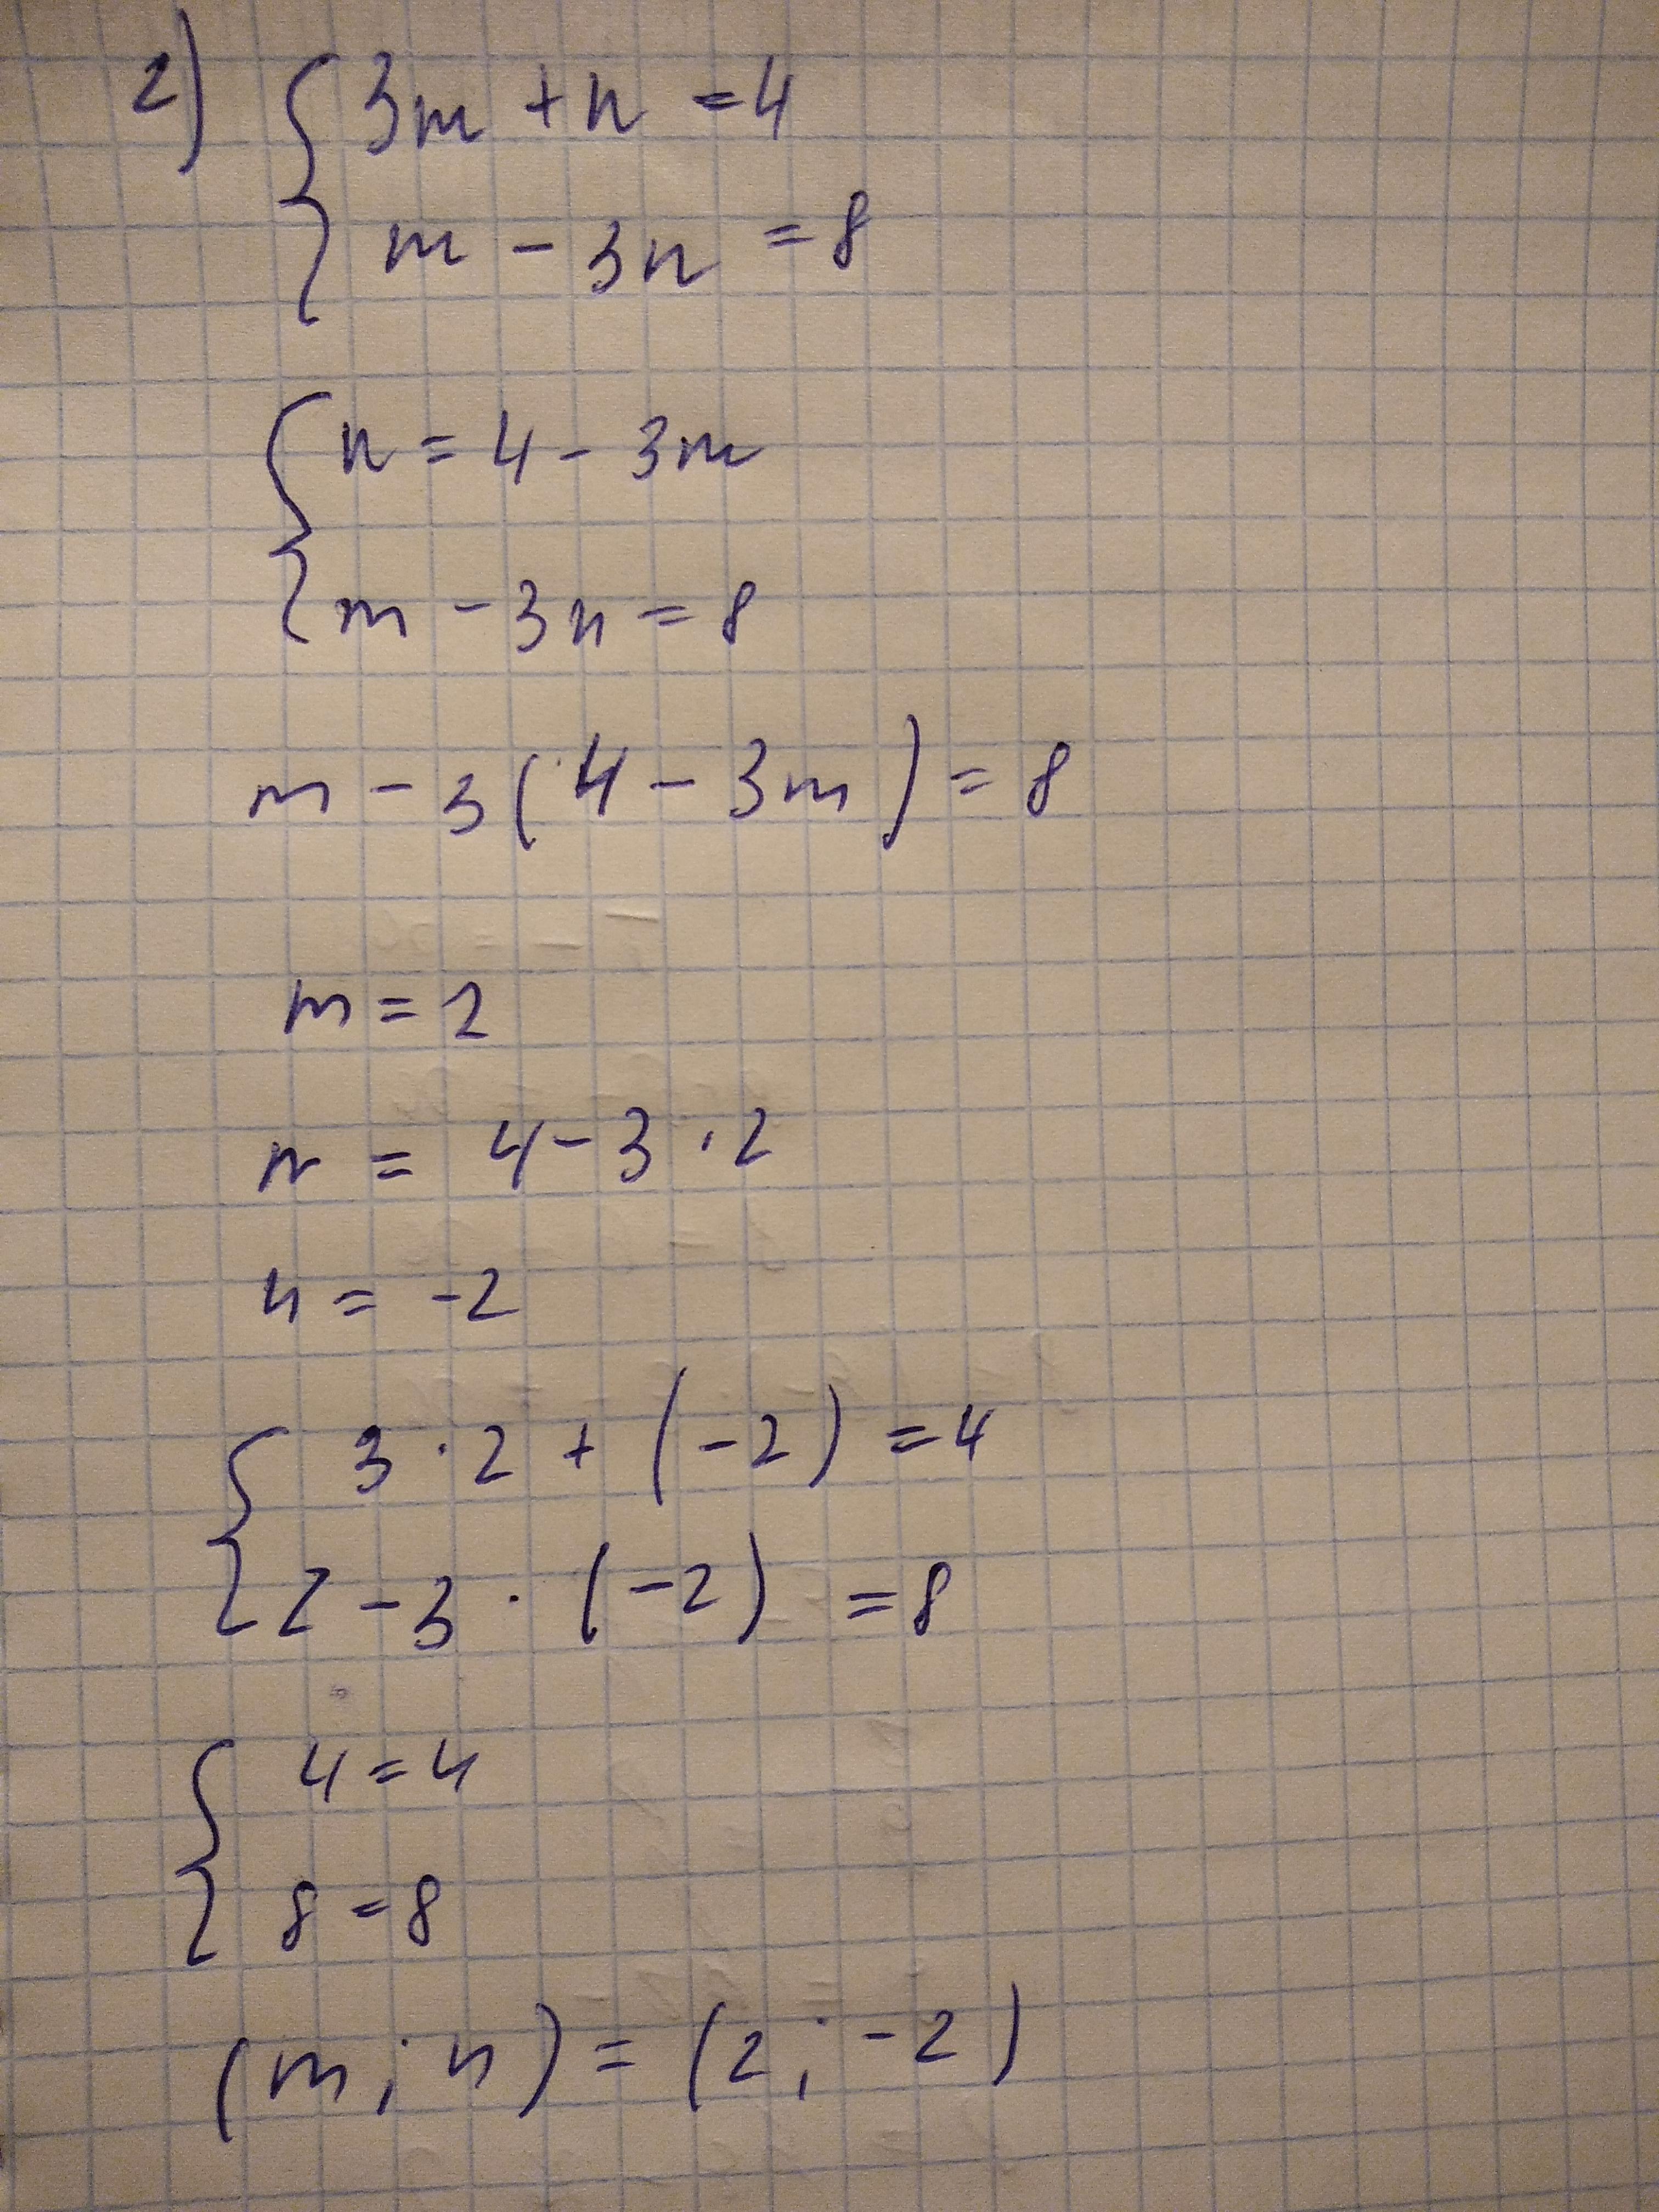 2) { 3m + n = 4
m - 3n = 8
{ n = 4 - 3m
m - 3n = 8
m - 3(4 - 3m) = 8
m = 2
n = 4 - 3 · 2
n = -2
{ 3 · 2 + (-2) = 4
2 - 3 · (-2) = 8
{ 4 = 4
8 = 8
(m; n) = (2; -2)